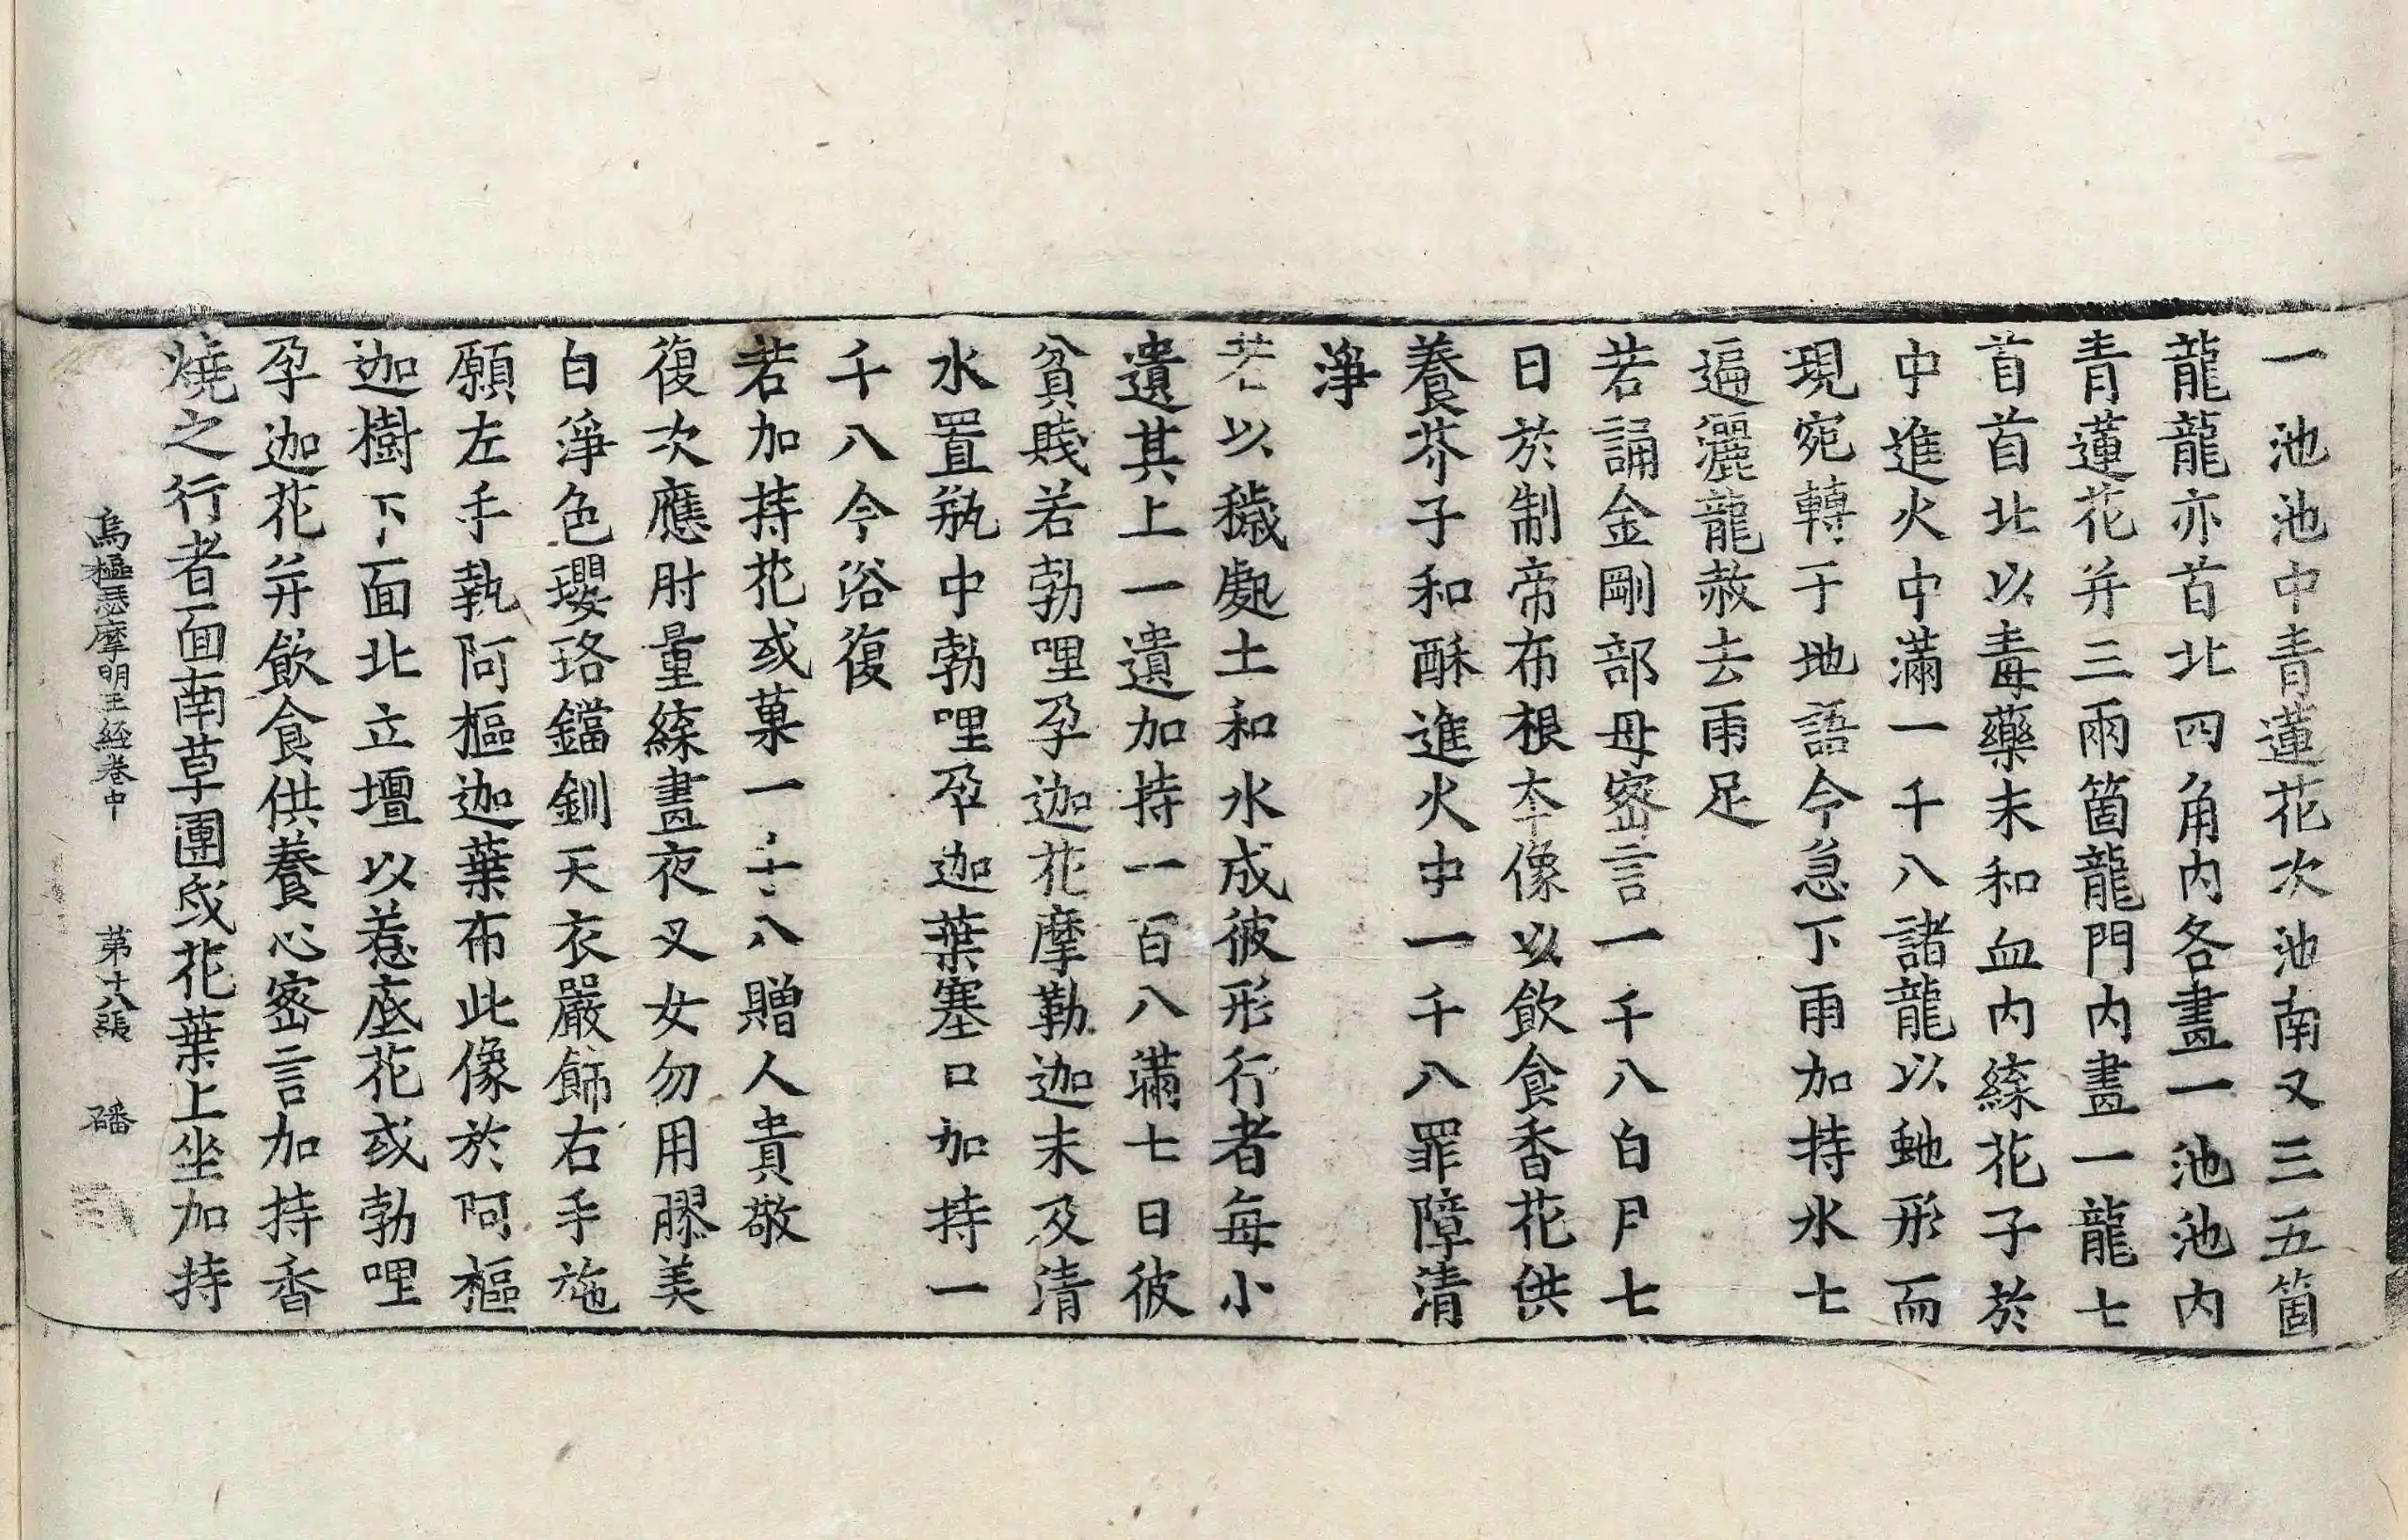 一池池中青蓮花次池南又三五箇
龍龍亦首北四角內各畫一池池內
青蓮花并三兩箇龍門內畫一龍七
首首北以毒藥末和血內練花子於
中進火中滿一千八諸龍以虵形而
現宛轉于地語令急下雨加持水七
遍灑龍赦去雨足
若誦金剛部母密言一千八白月七
日於制帝布根本像以飲食香花供
養芥子和酥進火中一千八罪障清
淨
若以穢處土和水成彼形行者每小
遺其上一遺加持一百八滿七日彼
貧賤若勃哩孕迦花摩勒迦末及清
水置瓶中勃哩孕迦葉塞口加持一
千八令浴復
若加持花或菓一千八贈人貴敬
復次應肘量練畫夜叉女勿用膠美
白淨色瓔珞鐺釧天衣嚴飾右手施
願左手執阿樞迦葉布此像於阿樞
迦樹下面北立壇以惹底花或勃哩
孕迦花并飲食供養心密言加持香
燒之行者面南草團或花葉上坐加持
烏樞瑟摩明王經卷中 第十八張 磻